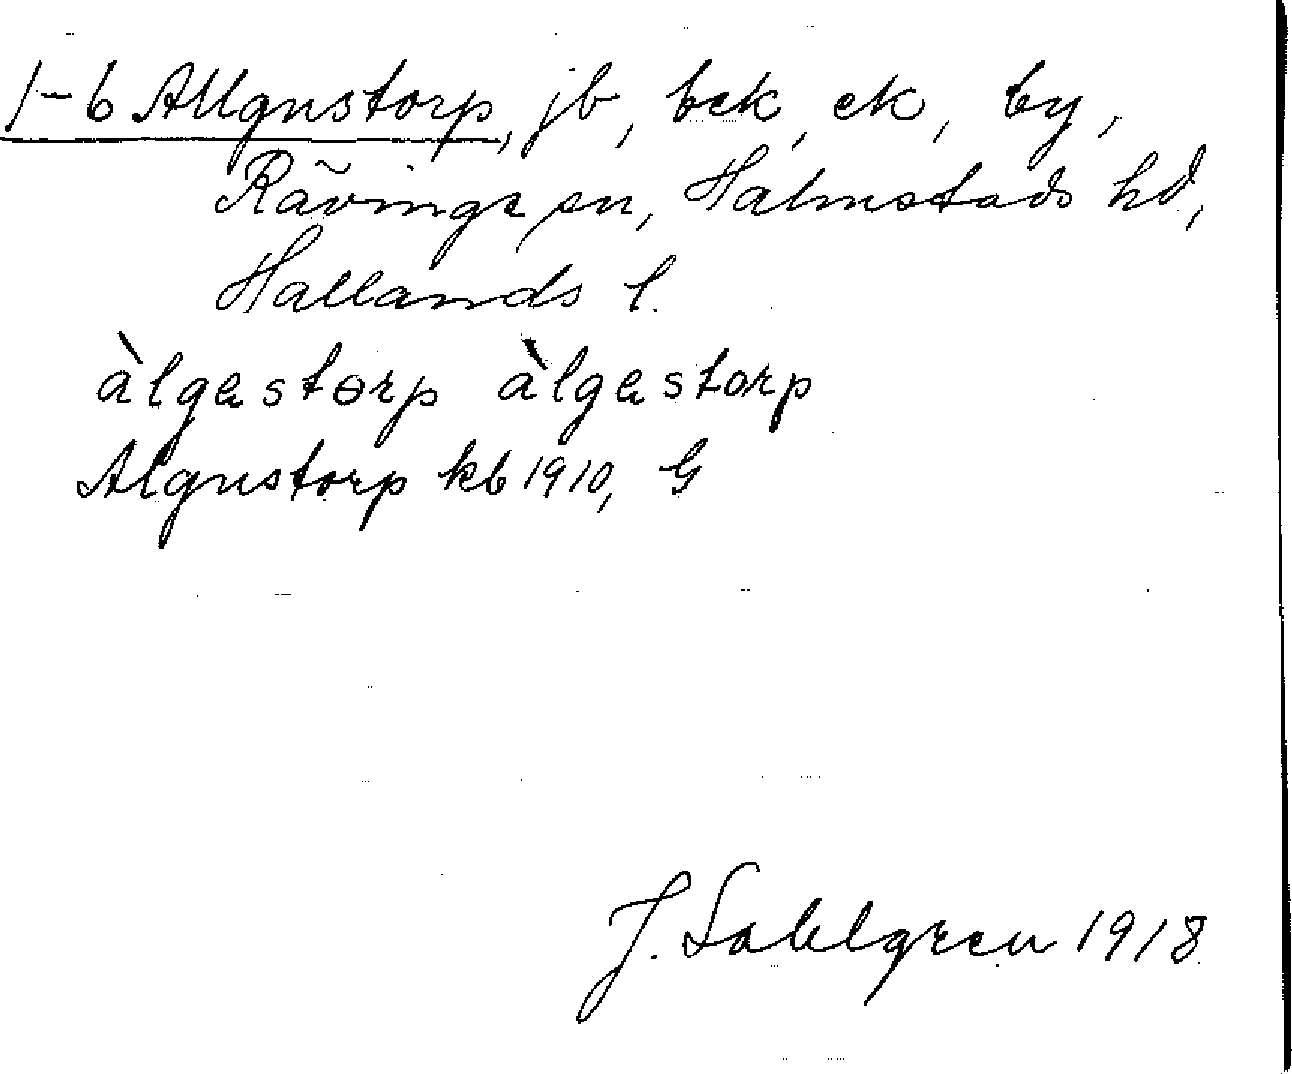 1-6 Allgustorp, jb, bek, ek, by,
Rävinge sn, Halmstads hd,
Hallands l.
àlgastorp àlgastorp
Algustorp kb 1910, G
J. Sahlgren 1918